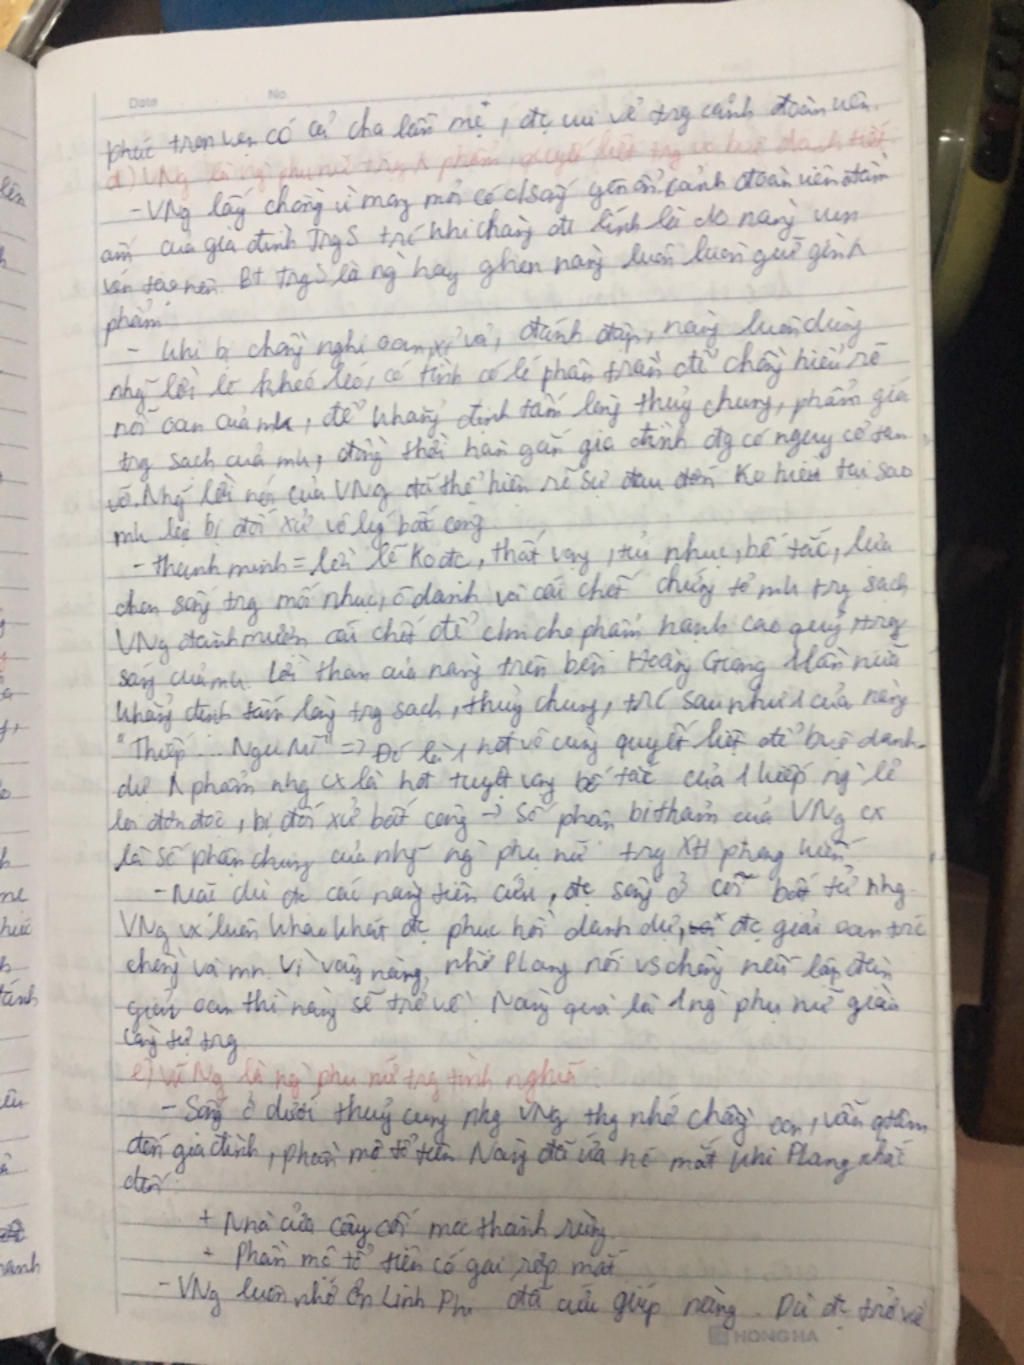 Date No.
phúc trọn vẹn có cả cha lẫn mẹ, đc vui vẻ trg cảnh đoàn viên.
d) VNg là ng phụ nữ trg phẩm, quyết liệt trg v danh tiết
- VNg lấy chồng may mới có sống yên ổn cảnh đoàn viên đầm
ấm của gia đình TrgS trc khi chàng đi lính là do nàng vun
vén tạo nên. Bt TrgS là ng hay ghen nàng luôn luôn giữ gìn
phẩm
- Khi bị chồng nghi oan, xỉ vả, đánh đập, nàng luôn dùng
nhg lời lẽ khéo léo, có tình có lí phân trần để chồng hiểu rõ
nỗi oan của mh, để khẳng định tấm lòng thuỷ chung, phẩm giá
trg sạch của mh, đồng thời hàn gắn gia đình đg có nguy cơ tan
vỡ. Nhg lời nói của VNg đã thể hiện rõ sự đau đớn ko hiểu tại sao
mh lại bị đối xử vô lý bất công.
- thanh minh = lời lẽ ko đc, thất vọng, tủi nhục, bế tắc, lựa
chọn sống trg mối nhục, ô danh và cái chết chứng tỏ mh trg sạch
VNg đành mượn cái chết để cm cho phẩm hạnh cao quý, trg
sáng của mh. Lời than của nàng trên bến Hoàng Giang 1 lần nữa
khẳng định tấm lòng trg sạch, thuỷ chung, trc sau như 1 của nàng
"Thiếp ... Ngu Mĩ" => Đó là 1 nét vô cùng quyết liệt để bvệ danh
dự phẩm nhg cx là nét tuyệt vọng bế tắc của 1 kiếp ng lẻ
loi đơn độc, bị đối xử bất công -> Số phận bi thảm của VNg cx
là số phận chung của nhg ng phụ nữ trg XH phong kiến
- Mặc dù đc các nàng tiên cứu, đc sống ở cõi bất tử nhg
VNg vx luôn khao khát đc phục hồi danh dự, đc giải oan trc
chồng và mn. Vì vậy nàng nhờ Plang nói vs chồng nếu lập đàn
giải oan thì nàng sẽ trở về. Nàng quả là 1 ng phụ nữ giàu
lòng tự trg
e) VNg là ng phụ nữ trg tình nghĩa
- Sống ở dưới thuỷ cung nhg VNg thg nhớ chồng con, vẫn qtâm
đến gia đình, phần mộ tổ tiên. Nàng đã ứa nc mắt khi Plang nhắc
đến
+ Nhà cửa cây cối mọc thành rừng.
+ Phần mộ tổ tiên có gai rợp mắt
- VNg luôn nhớ ơn Linh Phi đã cứu giúp nàng. Dù đc trở về
HONG HA